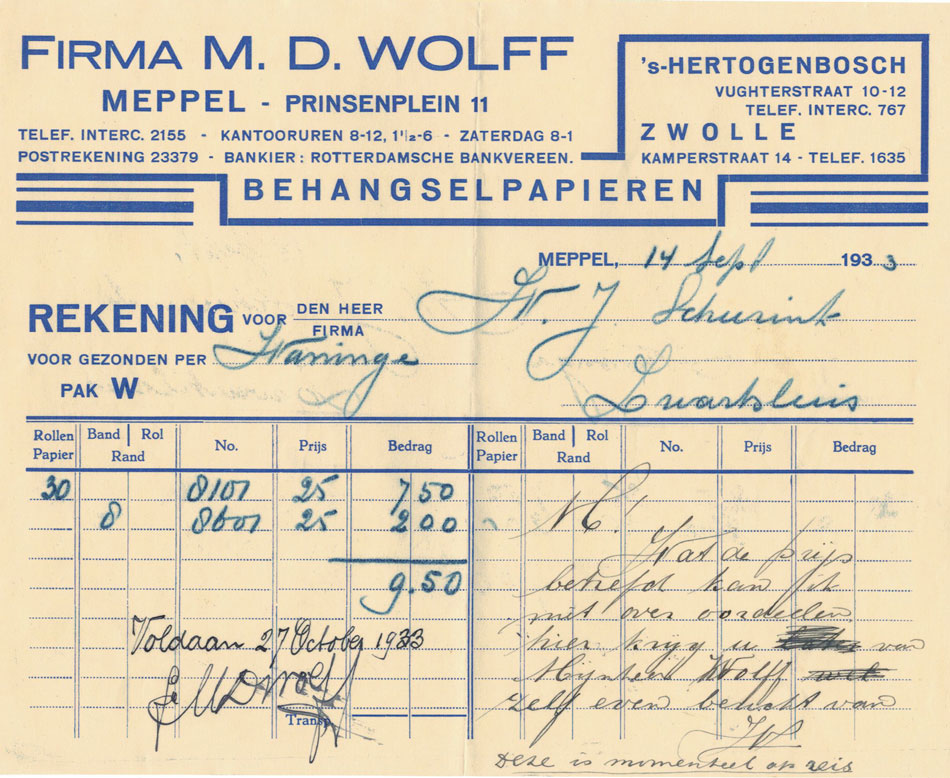 FIRMA M. D. WOLFF
MEPPEL - PRINSENPLEIN 11
TELEF. INTERC. 2155 - KANTOORUREN 8-12, 1½-6 - ZATERDAG 8-1
POSTREKENING 23379 - BANKIER: ROTTERDAMSCHE BANKVEREEN.
's-HERTOGENBOSCH
VUGHTERSTRAAT 10-12
TELEF. INTERC. 767
ZWOLLE
KAMPERSTRAAT 14 - TELEF. 1635
BEHANGSELPAPIEREN
MEPPEL, 14 Sept 1933
REKENING VOOR DEN HEER
FIRMA
J Schurink
VOOR GEZONDEN PER Wanninge
PAK W
Zwartsluis
Rollen Papier Band Rol Rand No. Prijs Bedrag Rollen Papier Band Rol Rand No. Prijs Bedrag
30 8101 25 7 50
8 8601 25 2 00
9.50
Voldaan 27 October 1933
MDWolff
Transp.
M!
Wat de prijs
betreft kan ik
niet over oordeelen
hier krijg u van
Mijnheer Wolff
zelf even bericht van
Deze is momenteel op reis